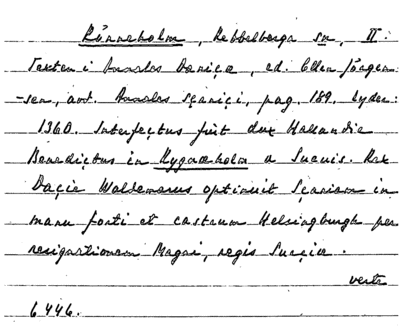 Rönneholm, Rebbelberga sn, II:
Texten i Annales Danicæ, ed. Ellen Jörgen-
-sen, avd. Annales Scanici, pag. 189, lyder:
1360. Interfectus fuit dux Hallandie
Benedictus in Rygnæholm a Suecis. Rex
Dacie Waldemarus optinuit Scaniam in
manu forti et castrum Helsingburgh per
resignationem Magni, regis Suecie.
verte
6446.